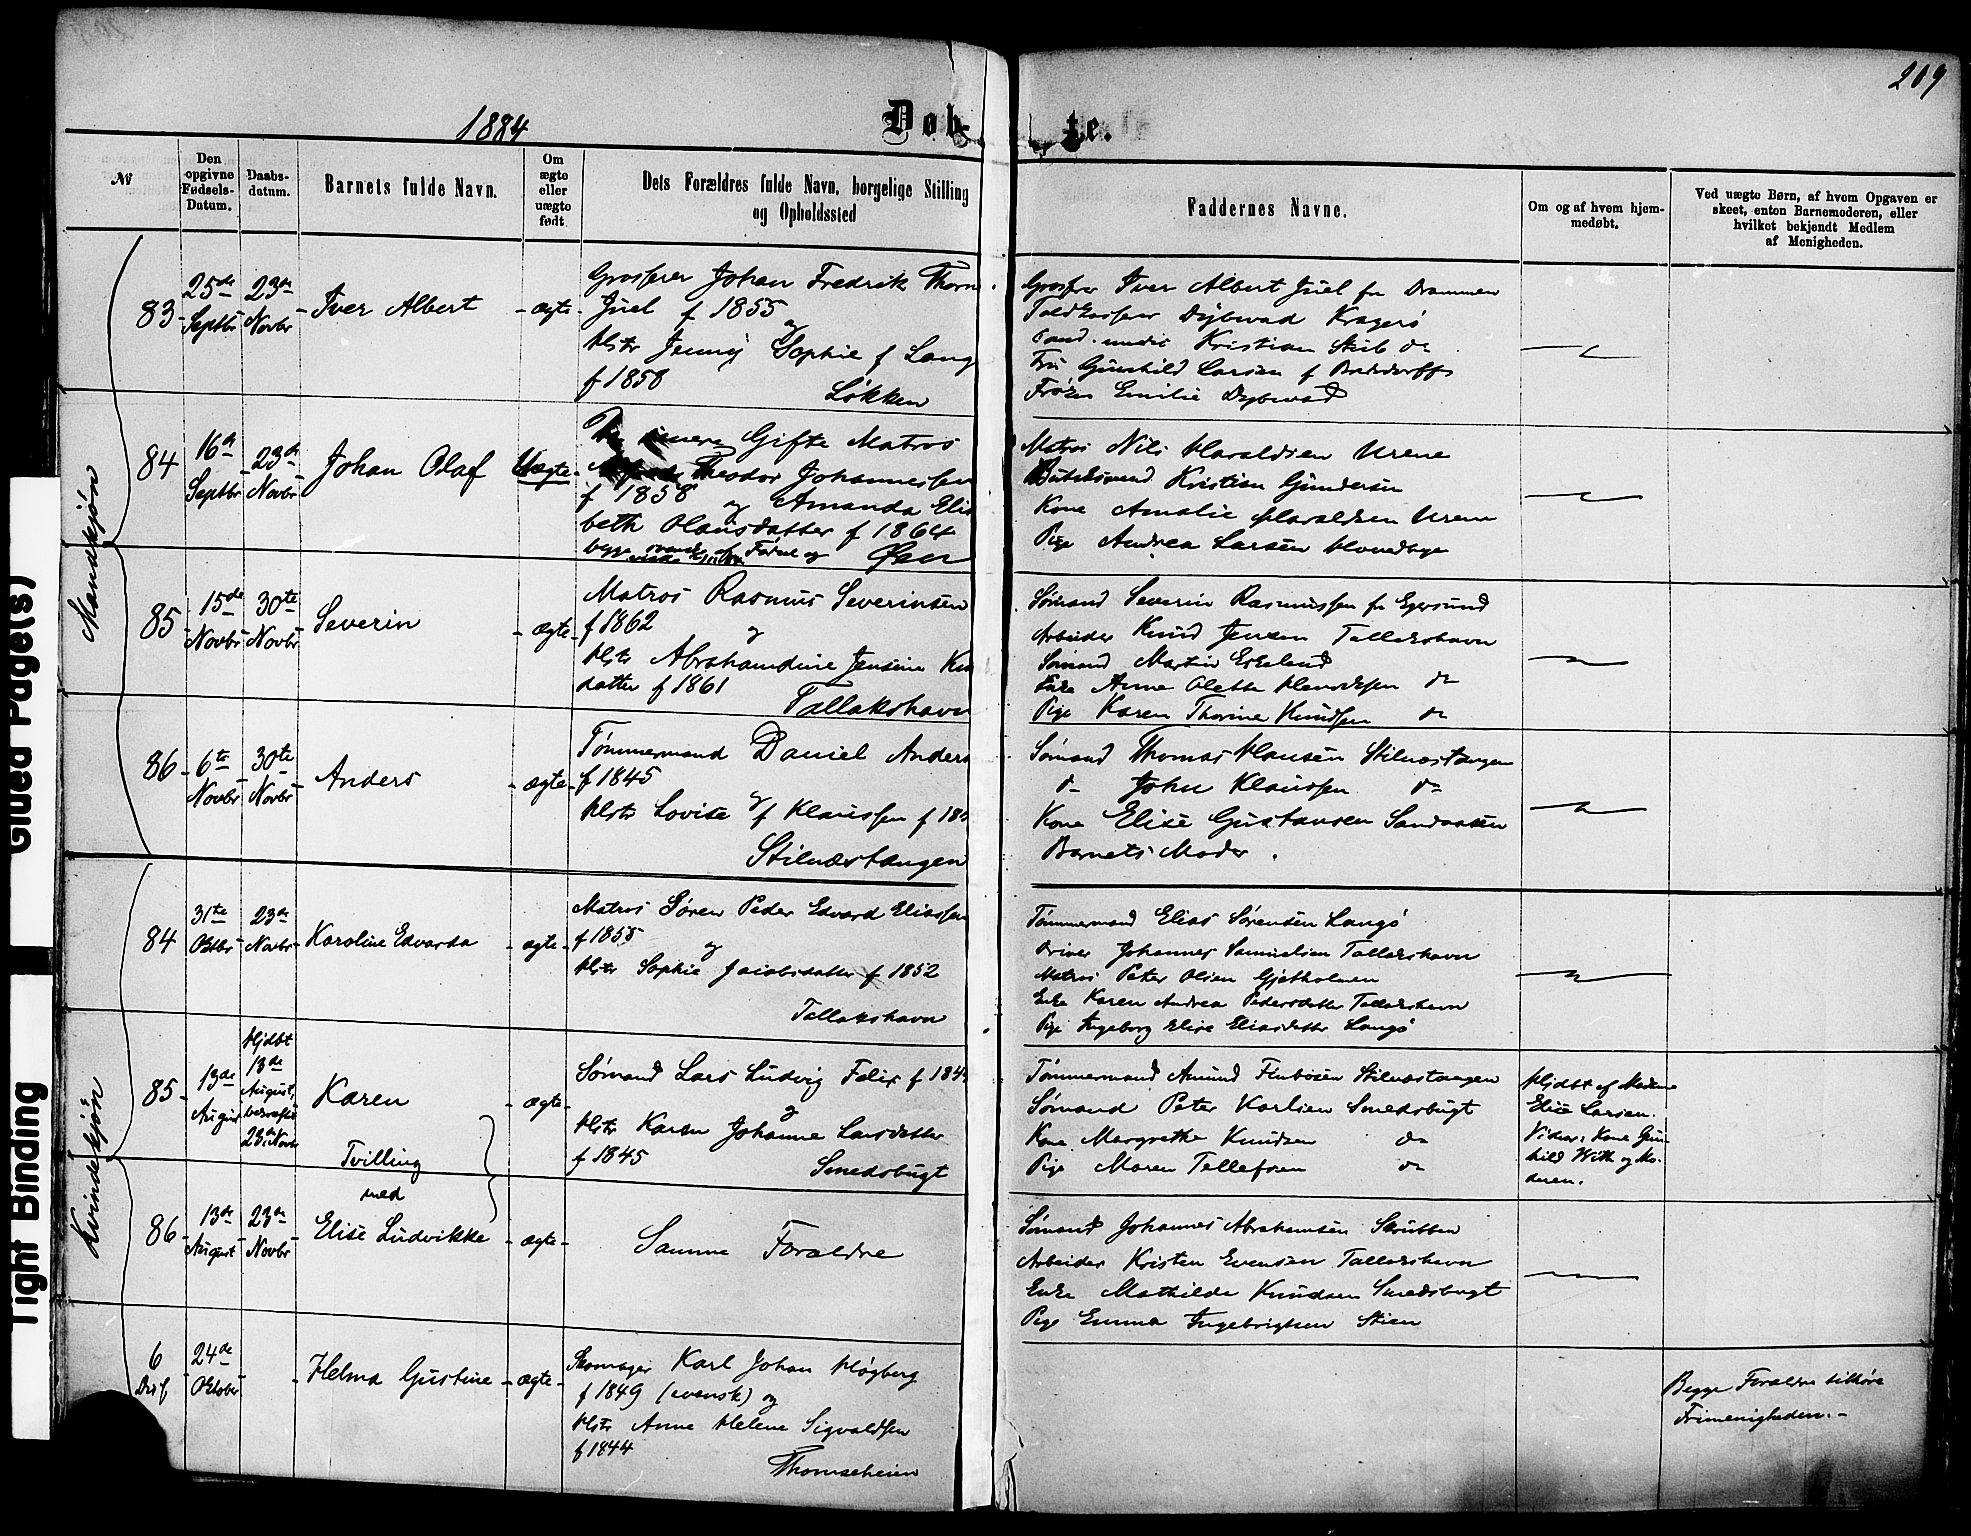 209
1884
Døbte.
№
Den opgivne Fødsels-Datum.
Daabs-datum.
Barnets fulde Navn.
Om ægte eller uægte født.
Dets Forældres fulde Navn, borgelige Stilling og Opholdssted
Faddernes Navne.
Om og af hvem hjem-medøbt.
Ved uægte Børn, af hvem Opgaven er skeet, enten Barnemoderen, eller hvilket bekjendt Medlem af Menigheden.
Mandkjøn
83
25de Septbr
23de Novbr
Iver Albert
ægte
Grosserer Johan Fredrik Thorn
Juel f 1855
og
Hstr Jenny Sophie f Lang
f 1858
Løkken
Grosserer Iver Albert Juel fr Drammen
Toldkasserer Dybwad Kragerø
Cand. medic Kristian Stib do
Fru Gunhild Larsen f
Frøken Emilie Dybwad
84
16de Septbr
23de Novbr
Johan Olaf
Uægte
Gifte Matros
Theodor Johannessen
f 1858 og Amanda Elis
beth Olausdatter f 1864
begge
Øen
Matros Nils Haraldsen Urene
Kristian Gundersen
Kone Amalie Haraldsen Urene
Pige Andrea Larsen
85
15de Novbr
30te Novbr
Severin
ægte
Matros Rasmus Severinsen
f 1862
og
Hstr Abrahamine Jensine Kn
datter f 1861
Tallakshavn
Sømand Severin Rasmussen fr Egersund
Arbeider Knud Jensen Tallakshavn
Sømand Martin Eskeland
Enke Anne Olette do
Pige Karen Thorine Knudsen do
86
6te Novbr
30te Novbr
Anders
ægte
Tømmermand Daniel Anders
f 1845
og
Hstr Lovise f Klaussen f 184
Stilnæstangen
Sømand Thomas Hansen Stilnæstangen
d- John Klaussen do
Kone Elise Gustavsen Sandaasen
Barnets Moder.
Kvindekjøn
84
31te Oktbr
23de Novbr
Karoline Edvarda
ægte
Matros Søren Peder Edvard Eliassen
f 1855
og
Hstr Sophie Jacobsdatter f 1852
Tallakshavn
Tømmermand Elias Sørensen Langø
Driver Johannes Samuelsen Tallakshavn
Matros Peter Olsen Gjetholmen
Enke Karen Andrea Pedersdatter Tallakshavn
Pige Ingeborg Elise Eliasdatter Langø
85
13de August
Hjdbt 13de August, bekræftet 23de Novbr
Karen
ægte
Sømand Lars Ludvig Felix f 184
og
Hstr Karen Johanne Larsdatter
f 1845
Smedsbugt
Tømmermand Amund Finbosen Stilnæstangen
Sømand Peter Karlsen Smedsbugt
Kone Margrethe Knudsen do
Pige Maren Tellefsen do
Hjdbt af Madame
Elise Larsen.
Vidner: Kone Gun-
hild With og Mo-
deren.
Tvilling
med
86
13de August
23de Novbr
Elise Ludvikke
ægte
Samme Forældre
Sømand Johannes Abrahamsen Skrubben
Arbeider Kristen Evensen Tallakshavn
Enke Mathilde Knudsen Smedsbugt
Pige Emma Ingebrigtsen Stien
6
Diss
24de Oktober
Helma Gustine
ægte
Skomager Karl Johan Høgberg
f 1849 (svensk) og
Hstr Anne Helene Sigvaldsen
f 1844
Thomseheien
Begge Forældre tilhøre
Frimenigheden.-
Glued Page(s)
Tight Binding